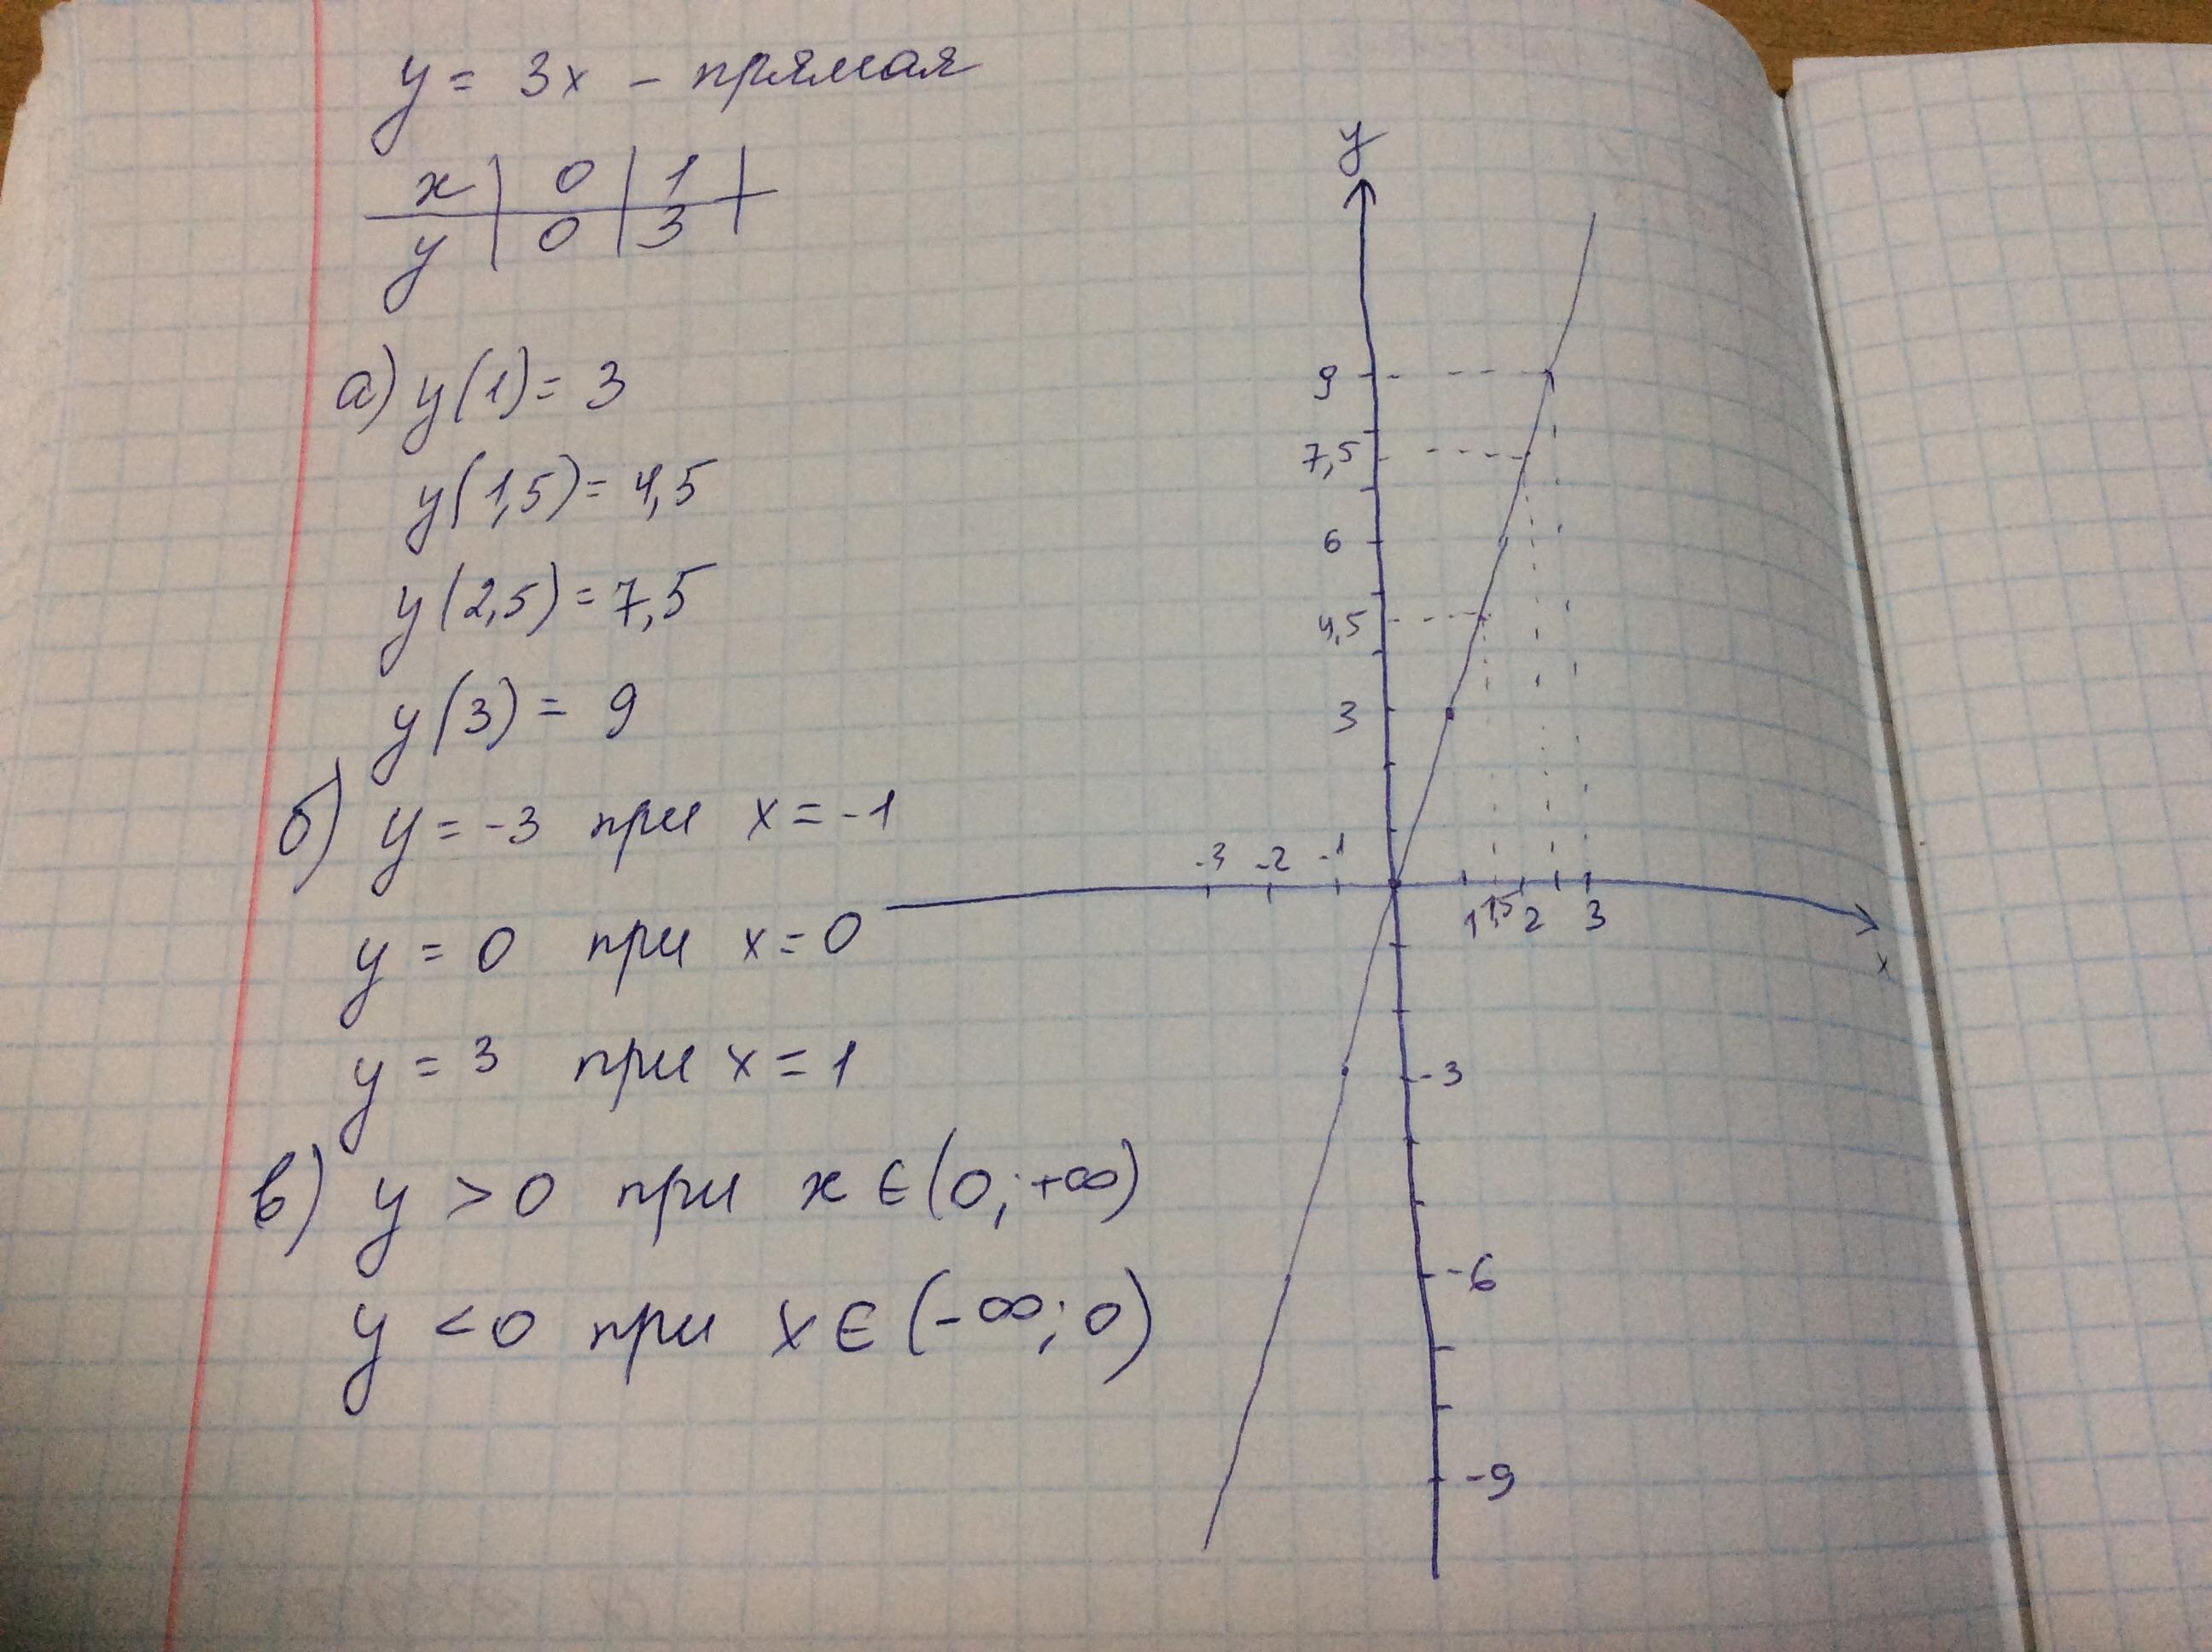 y = 3x – прямая
x | 0 | 1 |
y | 0 | 3 |
а) y(1) = 3
y(1,5) = 4,5
y(2,5) = 7,5
y(3) = 9
б) y = -3 при x = -1
y = 0 при x = 0
y = 3 при x = 1
в) y > 0 при x ∈ (0; +∞)
y < 0 при x ∈ (-∞; 0)
y
9
7,5
6
4,5
3
-3 -2 -1
1 1,5 2 3
x
-3
-6
-9